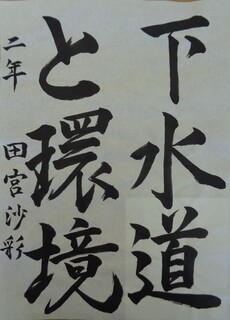 下水道
と環境
二年 田宮沙彩